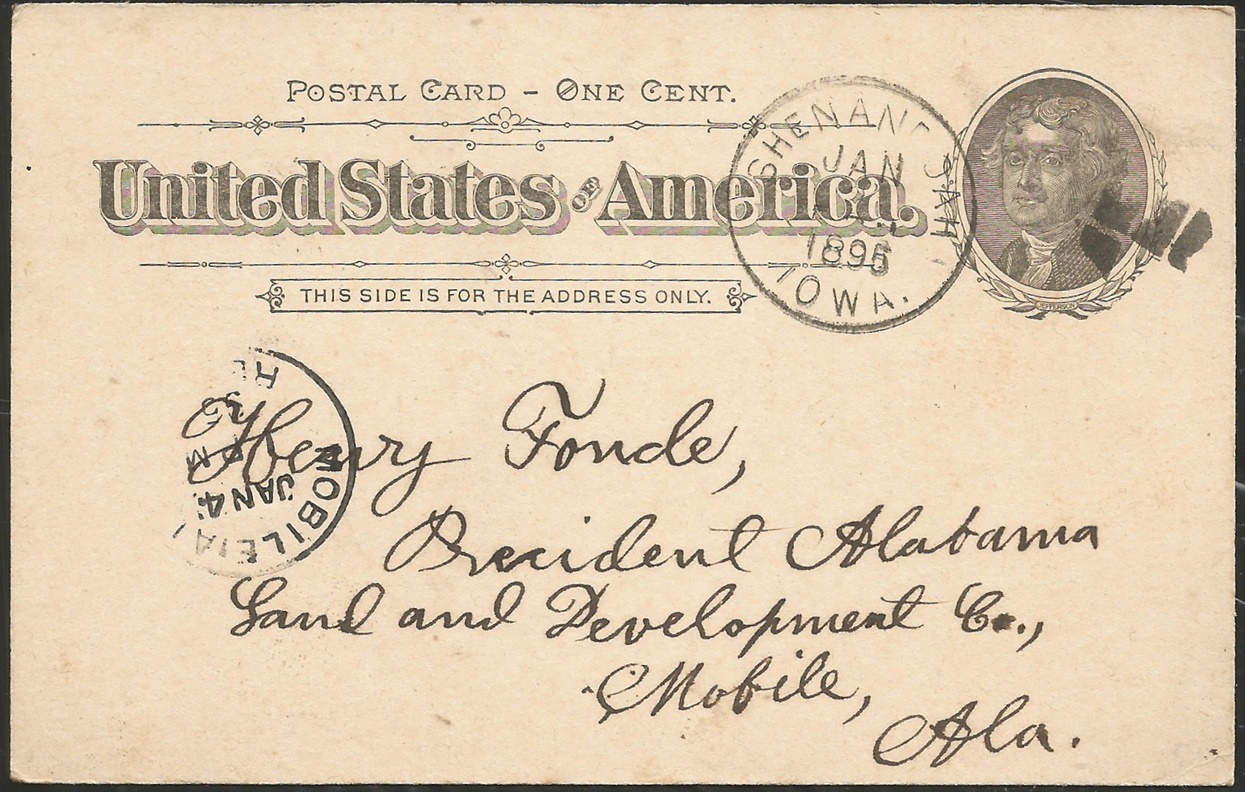 POSTAL CARD – ONE CENT.
United States OF America.
THIS SIDE IS FOR THE ADDRESS ONLY.
SHENANDOAH
JAN
1896
IOWA.
MOBILE
JAN 4
M
Henry Fonde,
President Alabama
Land and Development Co.,
Mobile,
Ala.